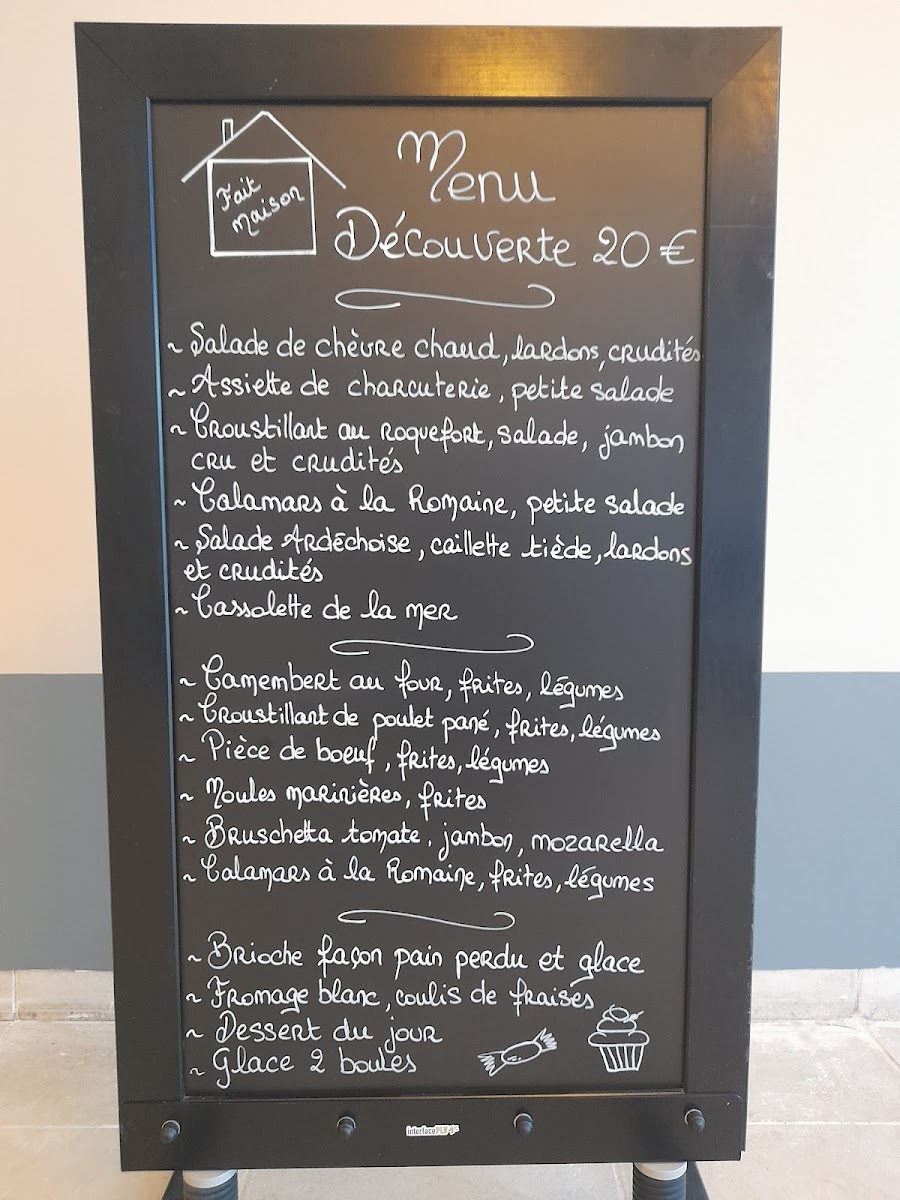 Fait
Maison
Menu
Découverte 20 €
~ Salade de chèvre chaud, lardons, crudités
~ Assiette de charcuterie, petite salade
~ Croustillant au roquefort, salade, jambon
cru et crudités
~ Calamars à la Romaine, petite salade
~ Salade Ardéchoise, caillette tiède, lardons
et crudités
~ Cassolette de la mer
~ Camembert au four, frites, légumes
~ Croustillant de poulet pané, frites, légumes
~ Pièce de boeuf, frites, légumes
~ Moules marinières, frites
~ Bruschetta tomate, jambon, mozarella
~ Calamars à la Romaine, frites, légumes
~ Brioche façon pain perdu et glace
~ Fromage blanc, coulis de fraises
~ Dessert du jour
~ Glace 2 boules
interfacePLV